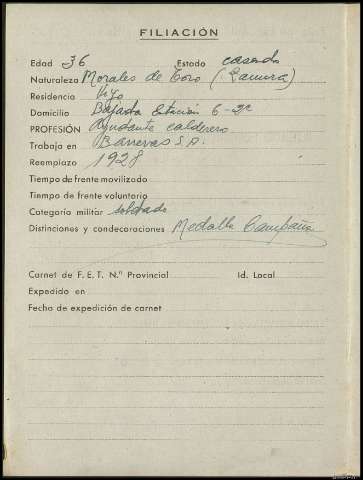 FILIACIÓN
Edad 36 Estado casado
Naturaleza Morales de Toro (Zamora)
Residencia Vigo
Domicilio Bajada Estación 6-2º
PROFESIÓN Ayudante calderero
Trabaja en Barreras S.A.
Reemplazo 1928
Tiempo de frente movilizado
Tiempo de frente voluntario
Categoría militar soldado
Distinciones y condecoraciones Medalla Campaña
Carnet de F.E.T. N.º Provincial Id. Local
Expedido en
Fecha de expedición de carnet